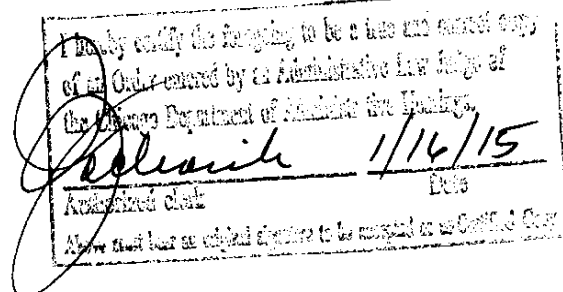 I hereby certify the foregoing to be a true and correct copy
of an Order entered by an Administrative Law Judge of
the Chicago Department of Administrative Hearings.
1/16/15
Authorized clerk Date
Above must bear an original signature to be accepted as a Certified Copy